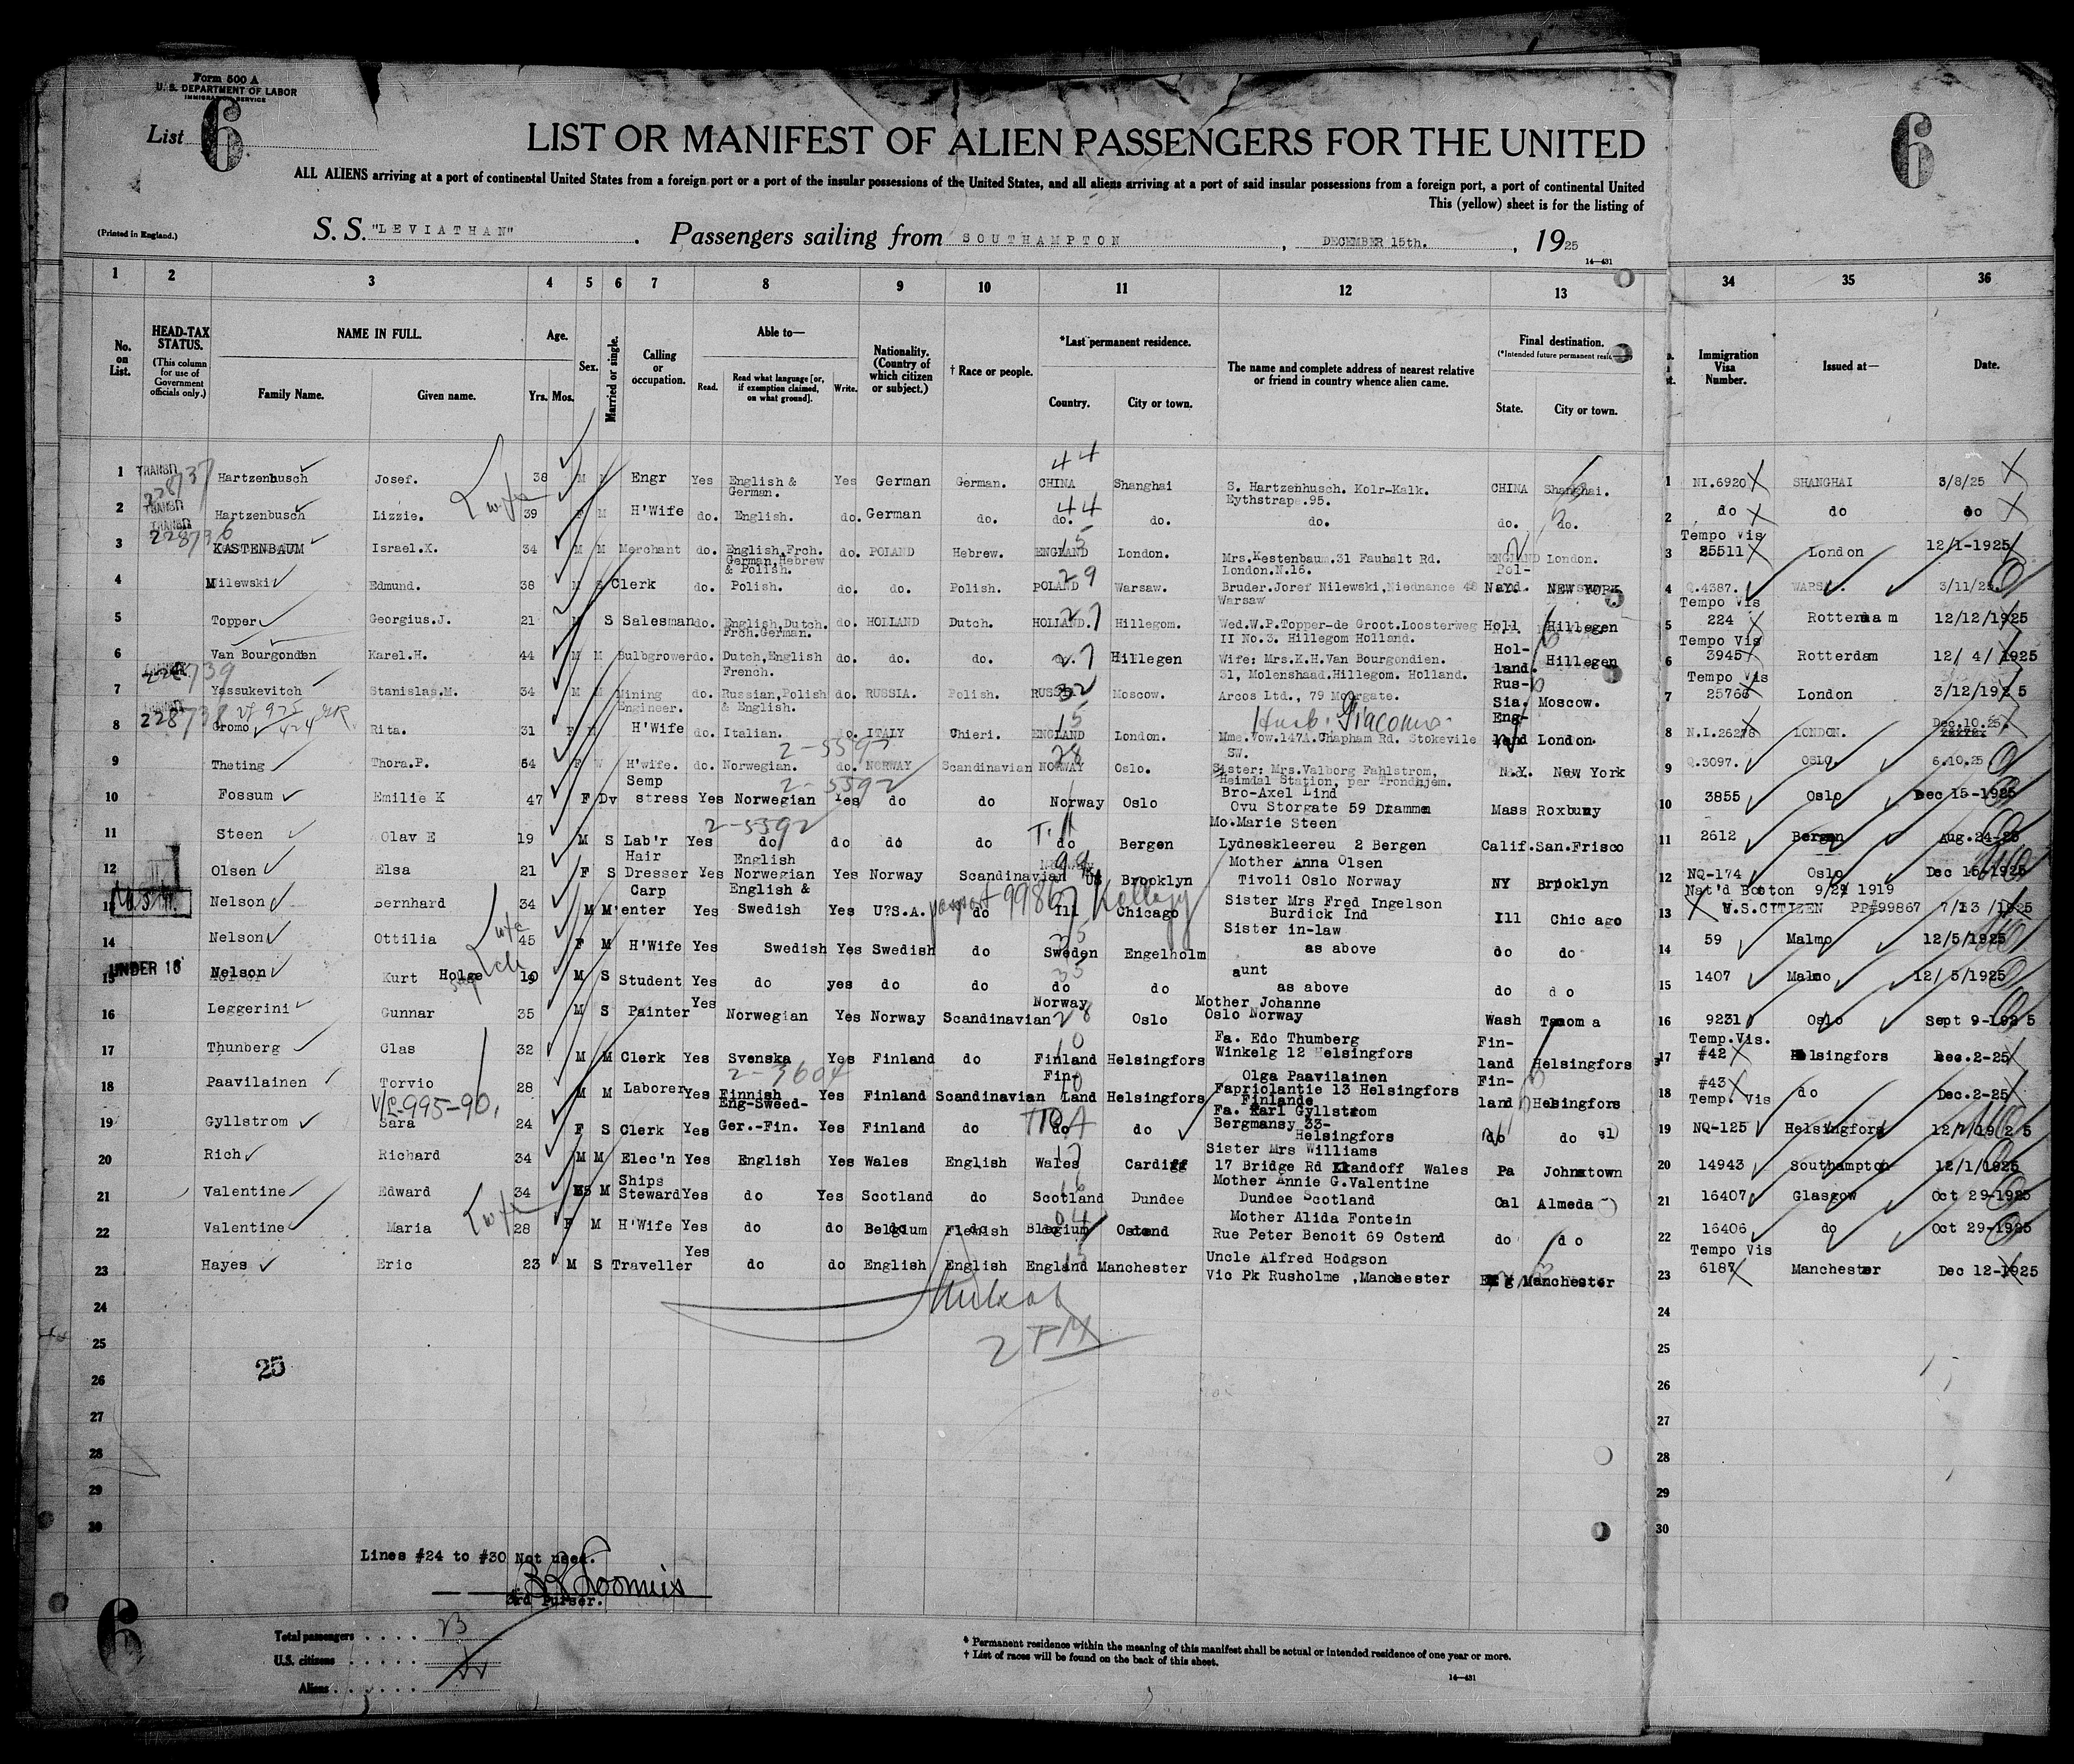 Form 500 A
U. S. DEPARTMENT OF LABOR
IMMIGRATION SERVICE
List 6
6
LIST OR MANIFEST OF ALIEN PASSENGERS FOR THE UNITED
ALL ALIENS arriving at a port of continental United States from a foreign port or a port of the insular possessions of the United States, and all aliens arriving at a port of said insular possessions from a foreign port, a port of continental United
This (yellow) sheet is for the listing of
(Printed in England.)
S. S. "LEVIATHAN" . Passengers sailing from SOUTHAMPTON , DECEMBER 15th. , 1925
14-431
1 2 3 4 5 6 7 8 9 10 11 12 13 34 35 36
No. on List.
HEAD-TAX STATUS. (This column for use of Government officials only.)
NAME IN FULL. Family Name. Given name.
Age. Yrs. Mos.
Sex.
Married or single.
Calling or occupation.
Able to— Read. Read what language [or, if exemption claimed, on what ground]. Write.
Nationality. (Country of which citizen or subject.)
† Race or people.
*Last permanent residence. Country. City or town.
The name and complete address of nearest relative or friend in country whence alien came.
Final destination. (*Intended future permanent State. City or town.
Immigration Visa Number.
Issued at—
Date.
1 TRANSIT 228737 Hartzenbusch Josef. 38 M Engr Yes English & German. Yes German German. 44 CHINA Shanghai S. Hartzenhusch. Kolr-Kalk. Eythstrape.95. CHINA Shanghai. 1 NI.6920 SHANGHAI 3/8/25
2 TRANSIT Hartzenbusch Lizzie. 39 F M H'Wife do. English. do. German do. 44 do. do. do. do. do. 2 do do do
3 TRANSIT 228736 KASTENBAUM Israel.X. 34 M M Merchant do. English,Frch. German,Hebrew & Polish. do. POLAND Hebrew. 15 ENGLAND London. Mrs.Kestenbaum.31 Fauhalt Rd. London.N.16. ENGLAND London. 3 Tempo Vis 25511 London 12/1-1925
4 Milewski Edmund. 38 M S Clerk do. Polish. do. do. Polish. 29 POLAND Warsaw. Bruder.Joref Nilewski,Niednance 48 Warsaw N.Y. NEW YORK 4 Q.4387. 3/11/25
5 Topper Georgius.J. 21 M S Salesman do. English,Dutch. Frch.German. do. HOLLAND Dutch. 27 HOLLAND. Hillegom. Wed.W.P.Topper-de Groot.Loosterweg II No.3. Hillegom Holland. Holl Hillegen 5 Tempo Vis 224 Rotterdam 12/12/1925
6 Van Bourgondien Karel.H. 44 M M Bulbgrower do. Dutch,English French. do. do. do. 27 Hillegen Wife: Mrs.K.H.Van Bourgondien. 31, Molenshaad.Hillegom. Holland. Hol- land. Hillegen 6 Tempo Vis 3945 Rotterdam 12/ 4/ 1925
7 228739 Yassukevitch Stanislas.M. 34 M M Mining Engineer. do. Russian,Polish & English. do. RUSSIA. Polish. 32 RUSSIA Moscow. Arcos Ltd., 79 Moorgate. Rus- Sia. Moscow. 7 Tempo Vis 25766 London 3/12/1925
8 228738 Vf 975 424 Gromo Rita. 31 F M H'Wife do. Italian. do. ITALY Chieri. 15 ENGLAND London. Husb: Giacomo. Mme.Vow.147A.Chapham Rd. Stokevile SW. Eng- land London. 8 N.I.26278 LONDON. Dec.10.25
9 Theting Thora.P. 54 F W H'wife. do. Norwegian. 2-5597 do. NORWAY Scandinavian 28 NORWAY Oslo. Sister: Mrs.Valborg Fahlstrom, Heimdal Station, per Trondhjem. N.Y. New York 9 Q.3097. OSLO. 6.10.25
10 Fossum Emilie K 47 F Dv Semp stress Yes Norwegian 2-5592 Yes do do Norway Oslo Bro-Axel Lind Ovu Storgate 59 Dramme Mass Roxbury 10 3855 Oslo Dec 15-1925
11 Steen Olav E 19 M S Lab'r Yes do 2-5592 do do do do Bergen Mo.Marie Steen Lydneskleereu 2 Bergen Calif. San.Frisco 11 2612 Bergen Aug.24-25
12 Olsen Elsa 21 F S Hair Dresser Yes English Norwegian Yes Norway Scandinavian 99 US Brooklyn Mother Anna Olsen Tivoli Oslo Norway NY Brooklyn 12 NQ-174 Oslo Dec 15-1925
13 Nelson Bernhard 34 M M Carp enter Yes English & Swedish Yes U?S.A. do passport 99867 Ill Chicago Sister Mrs Fred Ingelson Burdick Ind Ill Chic ago 13 Nat'd Boston 9/29 1919 U.S.CITIZEN PP#99867 7/13 /1925
14 Nelson Ottilia 45 F M H'Wife Yes Swedish Yes Swedish do 35 Sweden Engelholm Sister in-law as above do do 14 59 Malmo 12/5/1925
15 UNDER 16 Nelson Kurt Holge 10 M S Student Yes do yes do do 35 do do aunt as above do do 15 1407 Malmo 12/ 5/1925
16 Leggerini Gunnar 35 M S Painter Yes Norwegian Yes Norway Scandinavian Norway 28 Oslo Mother Johanne Oslo Norway Wash Tacoma 16 9231 Oslo Sept 9-1925
17 Thunberg Clas 32 M M Clerk Yes Svenska Yes Finland do 10 Finland Helsingfors Fa. Edo Thumberg Winkelg 12 Helsingfors Fin- land Helsingfors 17 Temp.Vis. #42 Helsingfors Dec.2-25
18 Paavilainen Torvio 28 M M Laborer Yes 2-3604 Finnish Yes Finland Scandinavian Fin- Land Helsingfors Olga Paavilainen Fapriolantie 13 Helsingfors Finlande Fin- land Helsingfors 18 #43 Temp. Vis do Dec.2-25
19 Gyllstrom V/L-995-90. Sara 24 F S Clerk Yes Eng-Sweed- Ger.-Fin. Yes Finland do do do Fa. Karl Gyllstrom Bergmansy 33- Helsingfors do do 19 NQ-125 Helsingfors 12/1/1925
20 Rich Richard 34 M M Elec'n Yes English Yes Wales English 17 Wales Cardiff Sister Mrs Williams 17 Bridge Rd Llandoff Wales Pa Johnstown 20 14943 Southampton 12/1/1925
21 Valentine Edward 34 M Ships Steward Yes do Yes Scotland do 16 Scotland Dundee Mother Annie G.Valentine Dundee Scotland Cal Almeda 21 16407 Glasgow Oct 29-1925
22 Valentine Maria 28 F M H'Wife Yes do do Belgium Flemish 04 Blegium Ostend Mother Alida Fontein Rue Peter Benoit 69 Ostend do do 22 16406 do Oct 29-1925
23 Hayes Eric 23 M S Traveller Yes do do English English 15 England Manchester Uncle Alfred Hodgson Vic Pk Rusholme ,Manchester Manchester 23 Tempo Vis 6187 Manchester Dec 12-1925
24 24
2 PM
25 25
25
26 26
27 27
28 28
29 29
30 30
Lines #24 to #30 Not used.
3rd Purser.
6
Total passengers . . . . 23
U.S. citizens . . . . .
Aliens . . . . . .
* Permanent residence within the meaning of this manifest shall be actual or intended residence of one year or more.
† List of races will be found on the back of this sheet.
14-431